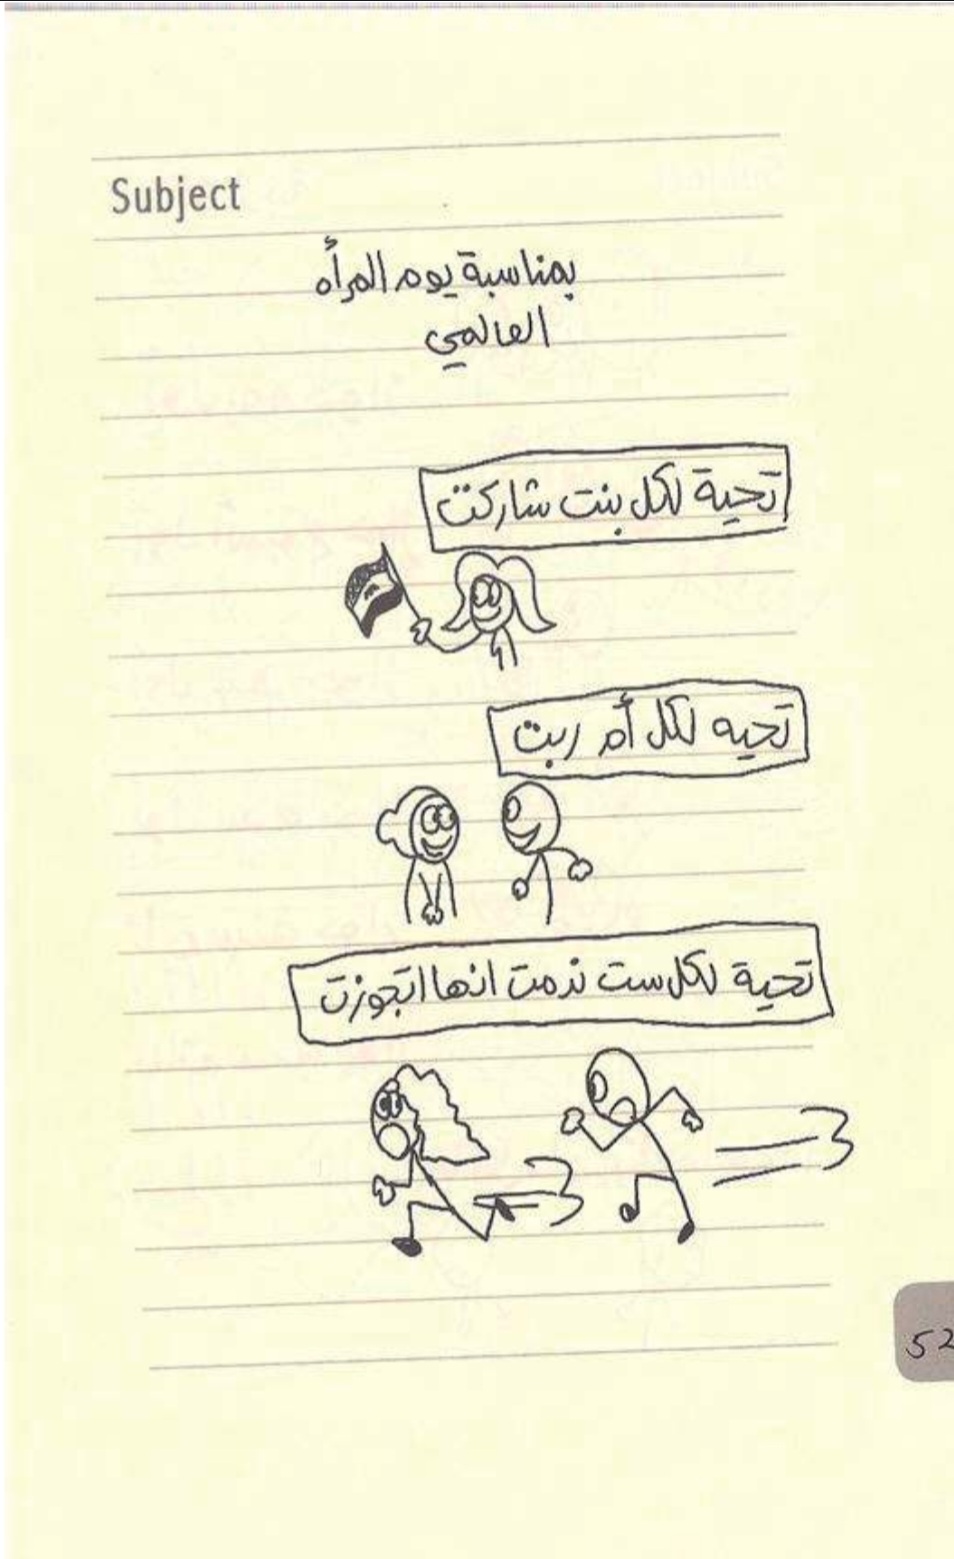 Subject
بمناسبة يوم المرأه
العالمي
تحية لكل بنت شاركت
تحيه لكل أم ربت
تحية لكل ست ندمت انها اتجوزت
52